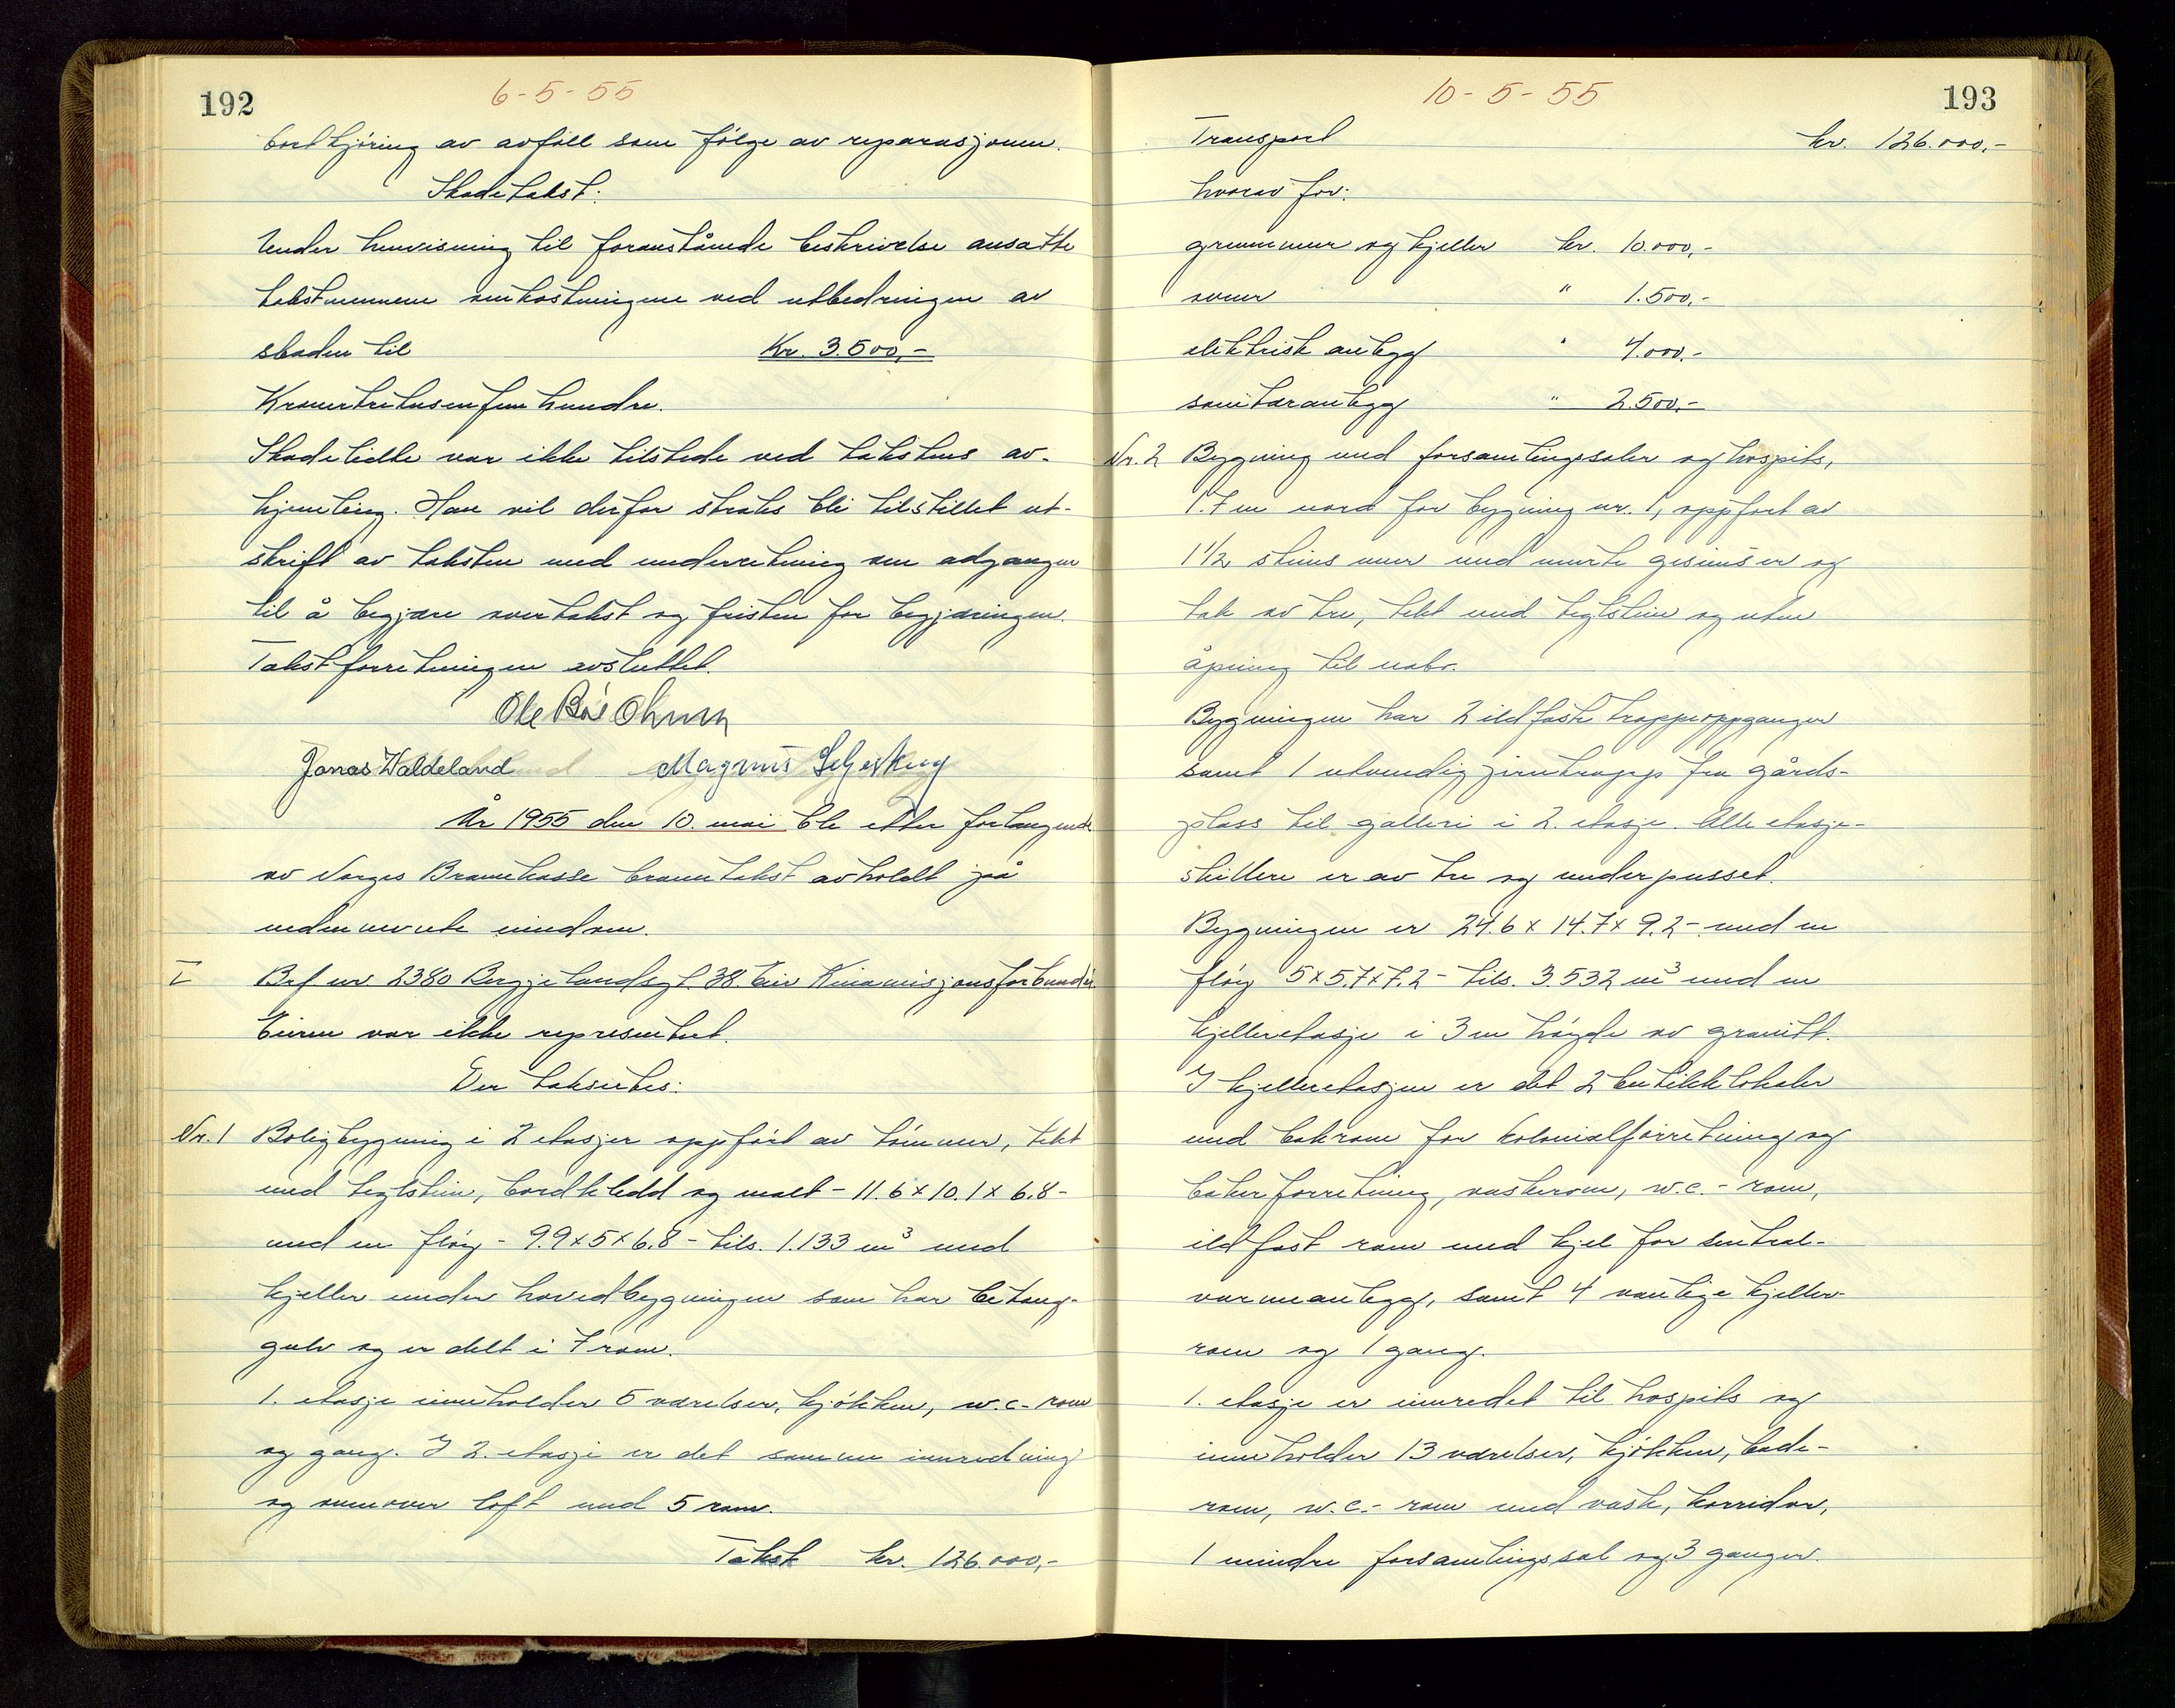 192
6-5-55
bortkjöring av avfall som fölge av reparasjonen.
Skadetakst:
Under henvisning til foranstående beskrivelse ansatte
takstmennene omkostningene ved utbedringen av
skaden til Kr. 3.500,-
Kronertretusenfemhundre.
Skadelidte var ikke tilstede ved takstens av-
hjemling. Han vil derfor straks bli tilstillet ut-
skrift av taksten med underretning om adgangen
til å begjære overtakst og fristen for begjæringen.
Takstforretningen avsluttet.
Ole Böe
Jonas Waldeland Magnus
År 1955 den 10. mai ble etter forlangende
av Norges Brannkasse branntakst avholdt på
nedennevnte eiendom.
I Br.f nr 2380 Bergjelandsgt. 38. Eier Kinamisjonsforbundet.
Eieren var ikke representert.
Der taksertes:
Nr. 1 Boligbygning i 2 etasjer oppfört av tömmer, tekt
med teglstein, bordkledd og malt - 11.6 x 10.1 x 6.8 -
med en flöy - 9.9 x 5 x 6.8 - tils. 1.133 m³ med
kjeller under hovedbygningen som har betong-
gulv og er delt i 7 rom.
1. etasje inneholder 5 værelser, kjökken, w.c.-rom
og gang. I 2. etasje er det samme innredning
og ovenover loft med 5 rom.
Takst kr. 126.000,-
10-5-55
193
Transport kr. 126.000,-
hvorav for:
grunnmur og kjeller kr. 10.000,-
ovner " 1.500,-
elektrisk anlegg " 4.000,-
sanitæranlegg " 2.500,-
Nr. 2 Bygning med forsamlingssaler og hospits,
1.7 m nord for bygning nr. 1, oppfört av
1 1/2 steins mur med murte gesimser og
tak av tre, tekt med teglstein og uten
åpning til nabo.
Bygningen har 2 ildfaste trappeoppganger
samt 1 utvendig jerntrapp fra gårds-
plass til galleri i 2. etasje. Alle etasje-
skillere er av tre og underpusset.
Bygningen er 24.6 x 14.7 x 9.2 - med en
flöy 5 x 5.7 x 7.2 - tils. 3.532 m³ med en
kjelleretasje i 3 m höyde av granitt.
I kjelleretasjen er det 2 butikklokaler
med bakrom for kolonialforretning og
bakerforretning, vaskerom, w.c.-rom,
ildfast rom med kjel for sentral-
varmeanlegg, samt 4 vanlige kjeller-
rom og 1 gang.
1. etasje er innredet til hospits og
inneholder 13 værelser, kjökken, bade-
rom, w.c.-rom med vask, korridor,
1 mindre forsamlingssal og 3 ganger.